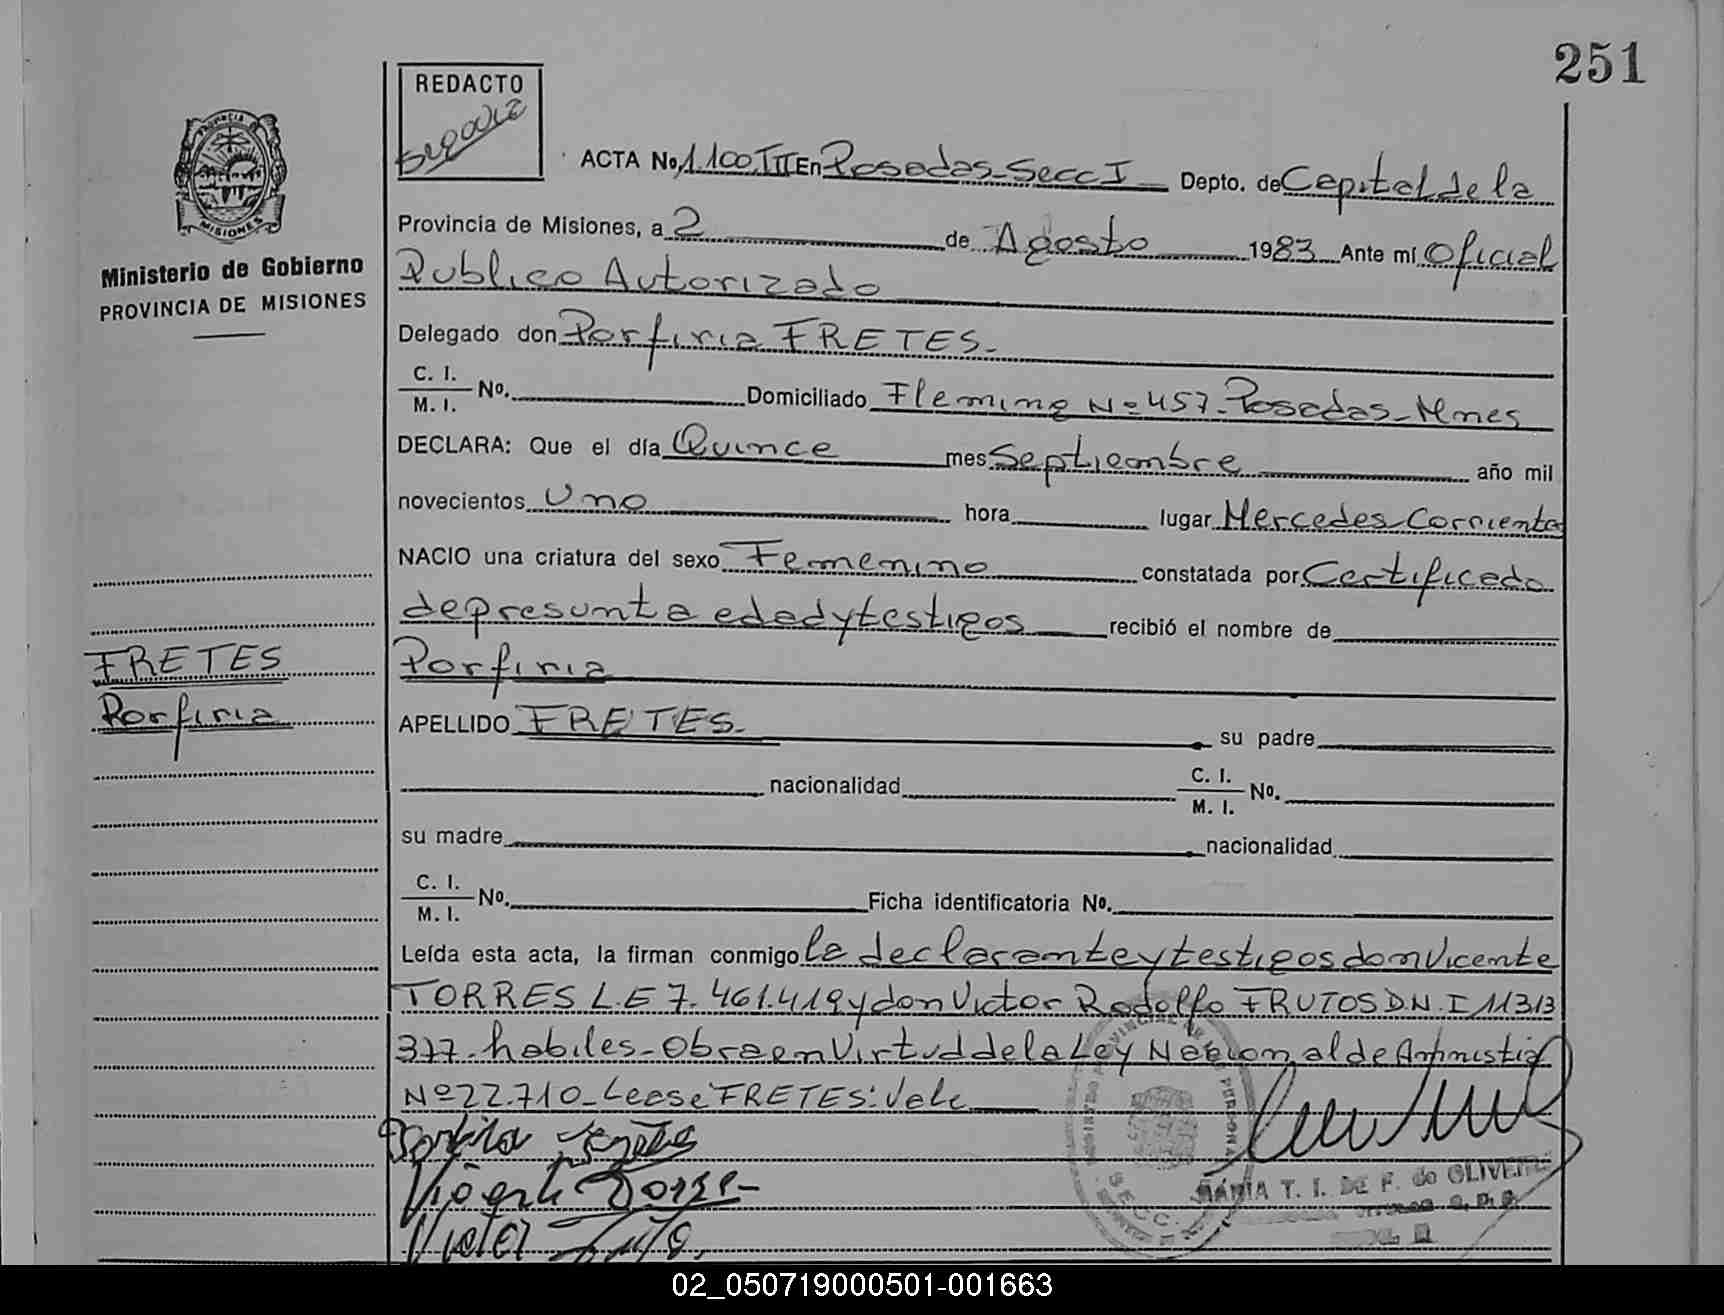 251
REDACTO
PROVINCIA DE
MISIONES
Ministerio de Gobierno
PROVINCIA DE MISIONES
ACTA No. 1.100.TII En Posadas-Secc I Depto. de Capital de la
Provincia de Misiones, a 2 de Agosto 1983 Ante mí Oficial
Publico Autorizado
Delegado don Porfiria FRETES.-
C. I.
M. I.
No. Domiciliado Fleming Nº 457-Posadas-Mnes
DECLARA: Que el día Quince mes Septiembre año mil
novecientos Uno hora lugar Mercedes-Corrientes
NACIO una criatura del sexo Femenino constatada por Certificado
de presunta edad y testigos recibió el nombre de
FRETES
Porfiria
Porfiria
APELLIDO FRETES.- su padre
nacionalidad C. I.
M. I.
No.
su madre nacionalidad
C. I.
M. I.
No. Ficha identificatoria No.
Leída esta acta, la firman conmigo la declarante y testigos don Vicente
TORRES L.E 7.461.419 y don Victor Rodolfo FRUTOS D.N.I 11313
377-habiles-Obra en Virtud de la Ley Nacional de Amnistia
Nº 22.710-Lease FRETES: Vale
Victor
MARIA T. I. DE F. de OLIVEIRA
02_050719000501-001663